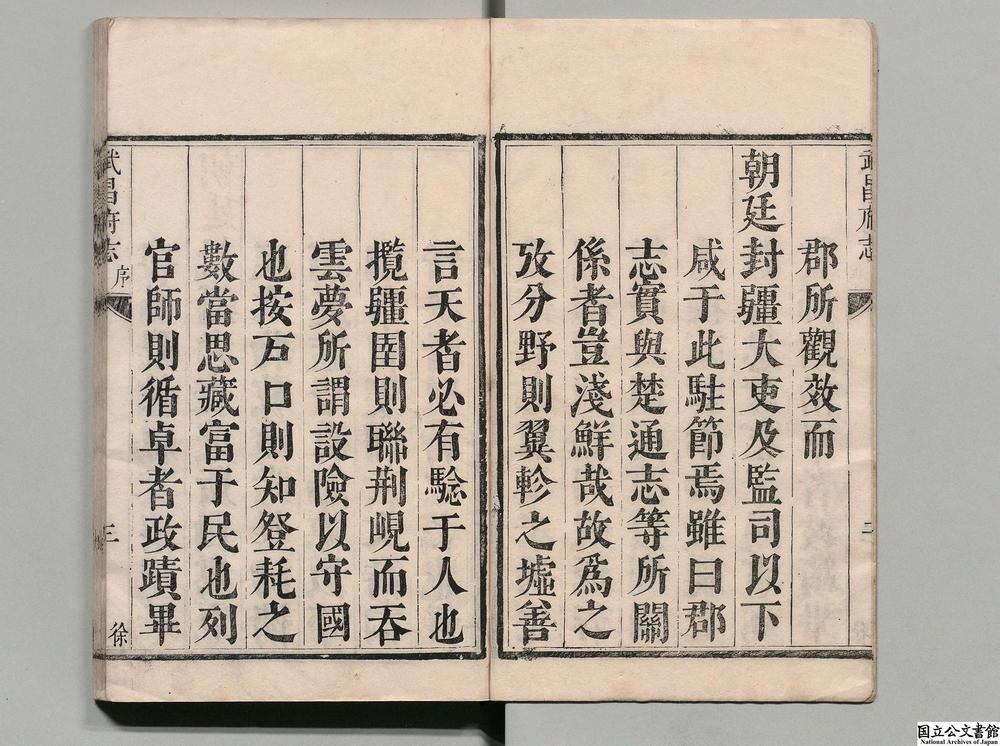 武昌府志
二
郡所觀效而
朝廷封疆大吏及監司以下
咸于此駐節焉雖曰郡
志實與楚通志等所關
係者豈淺鮮哉故為之
攷分野則翼軫之墟善
言天者必有騐于人也
攬疆圉則聯荆峴而吞
雲夢所謂設險以守國
也按户口則知登耗之
數當思藏富于民也列
官師則循卓者政蹟畢
武昌府志
序
三
徐
国立公文書館
National Archives of Japan